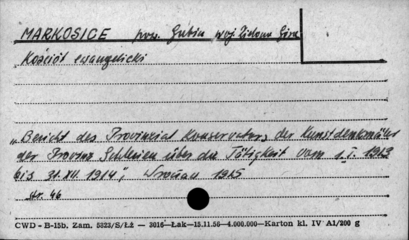 MARKOSICE pow. Gubin woj. Zielona Góra
Kościół ewangelicki
"Bericht des Provinzial Konservators der Kunstdenkmäler
der Provinz Schlesien über die Tätigkeit vom 1.I. 1913
bis 31.XII. 1914", Wrocław 1915
str. 46
CWD - B-15b. Zam. 5823/S/Łż — 3016 — Łak — 15.11.56 — 4.000.000 — Karton kl. IV A1/200 g